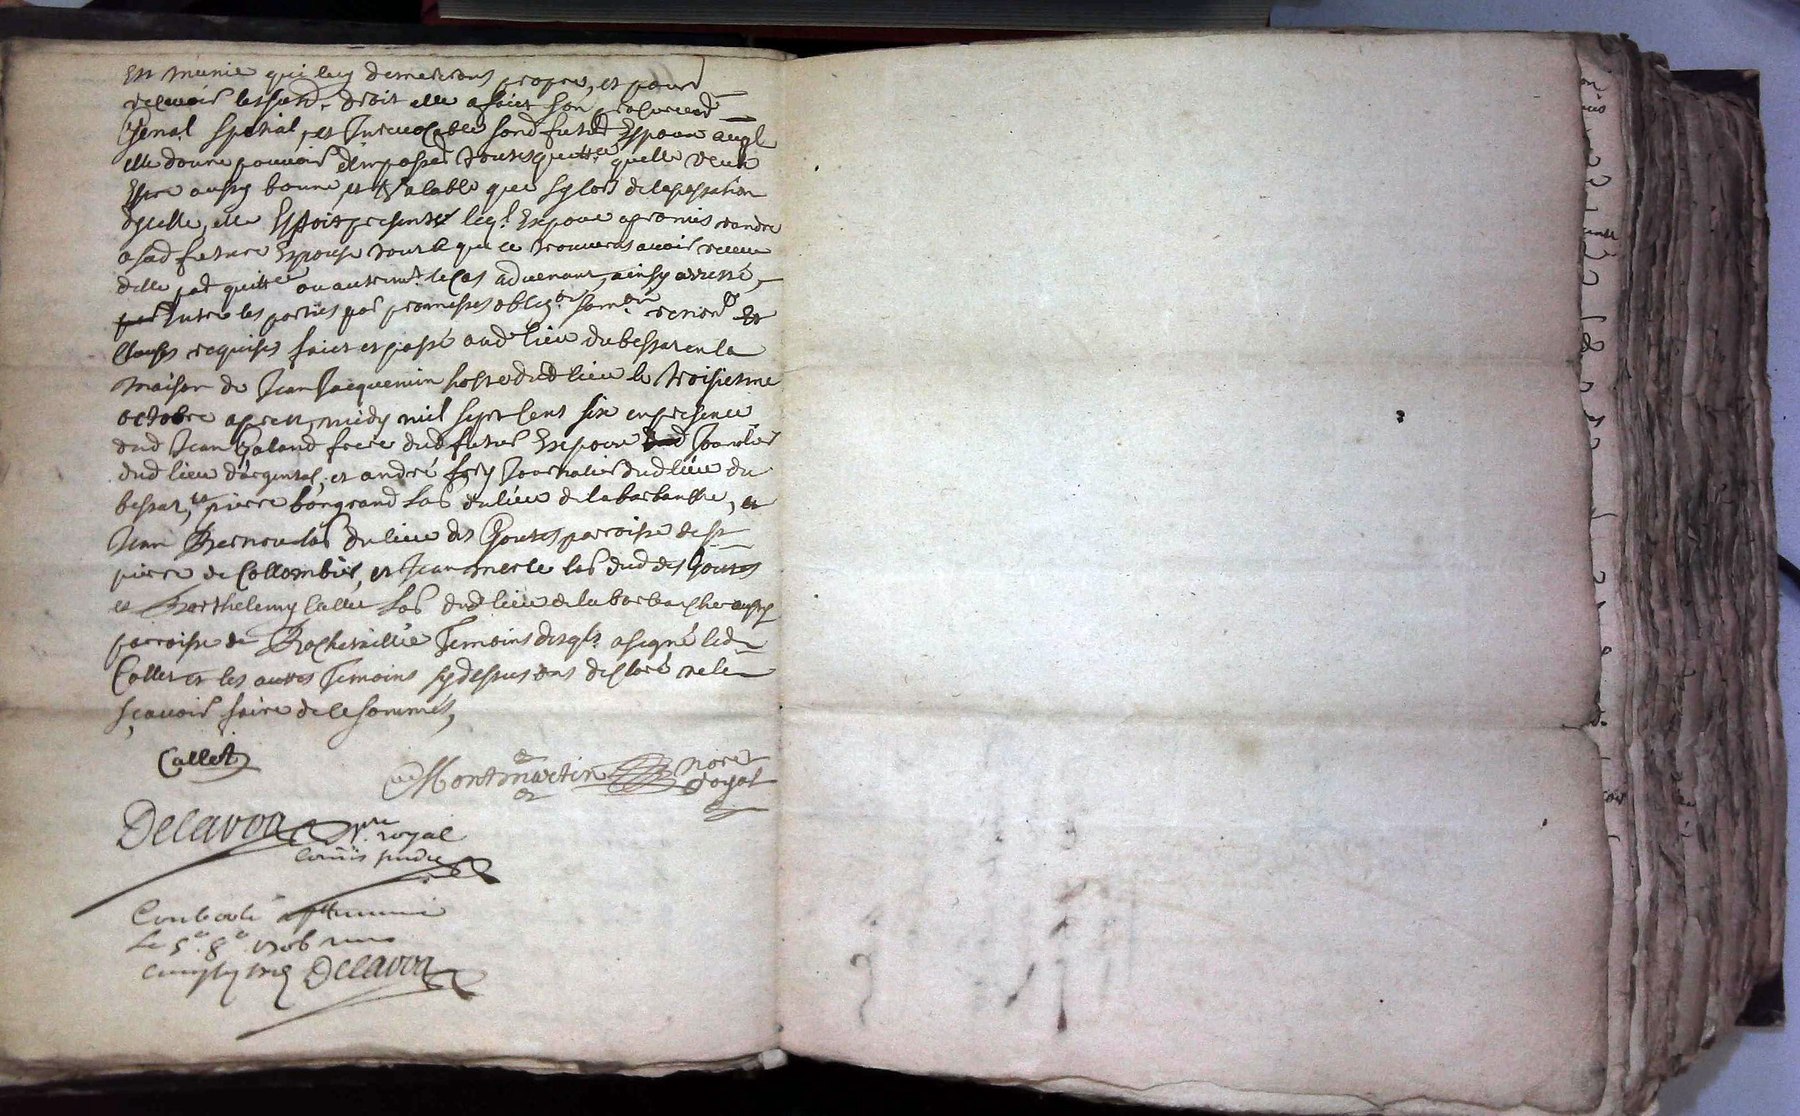 en munie qui luy demeurons propre, et pour
recevoir lessusd. droit elle a faict son procureur
genal spetial, et Irrevocable sond futur Espoux auql
elle donne pouvoir d'en passer toutes quittes quelle veut
Estre aussy bonne et Valable que sy lors de la passation
dycelle, elle Estoit presente leql Espoux a promis randre
a sad future Espouse tout ce que ce trouvera avoir receu
delle par quitte ou autremt le cas advenant, ainsy arresté
Entre les parties par promesses oblig.on soum.on renon.on et
Clauses requises faict et passé aud lieu du bessat en la
maison de Jean Jacquemin hoste dud lieu le troisiesme
octobre apres midy mil sept Cent six en presence
dud Jean Galand frere dud futur Espoux
dud lieu d'argental, et andré Journalier dud lieu du
bessat, pierre bongrand lab du lieu de la barbanche, et
Jean lab du lieu des Goutes parroisse de st
pierre de Collombier, et Jean merle lab dud des Goutes
et Barthelemy Callet lab dud lieu de la barbanche aussy
parroisse de Rochetaillée Temoins desqls a signé led
Callet et les autres Temoins sy dessus ont declaré ne le
sçavoir faire de ce sommés,
Callet
Montmartin nore
royal
Delavoa nre royal
commis
Controlé a
Le 5e 8e 1706
Delavoa